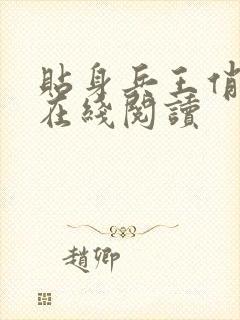 貼身兵王俏
在綫閱讀
趙卿